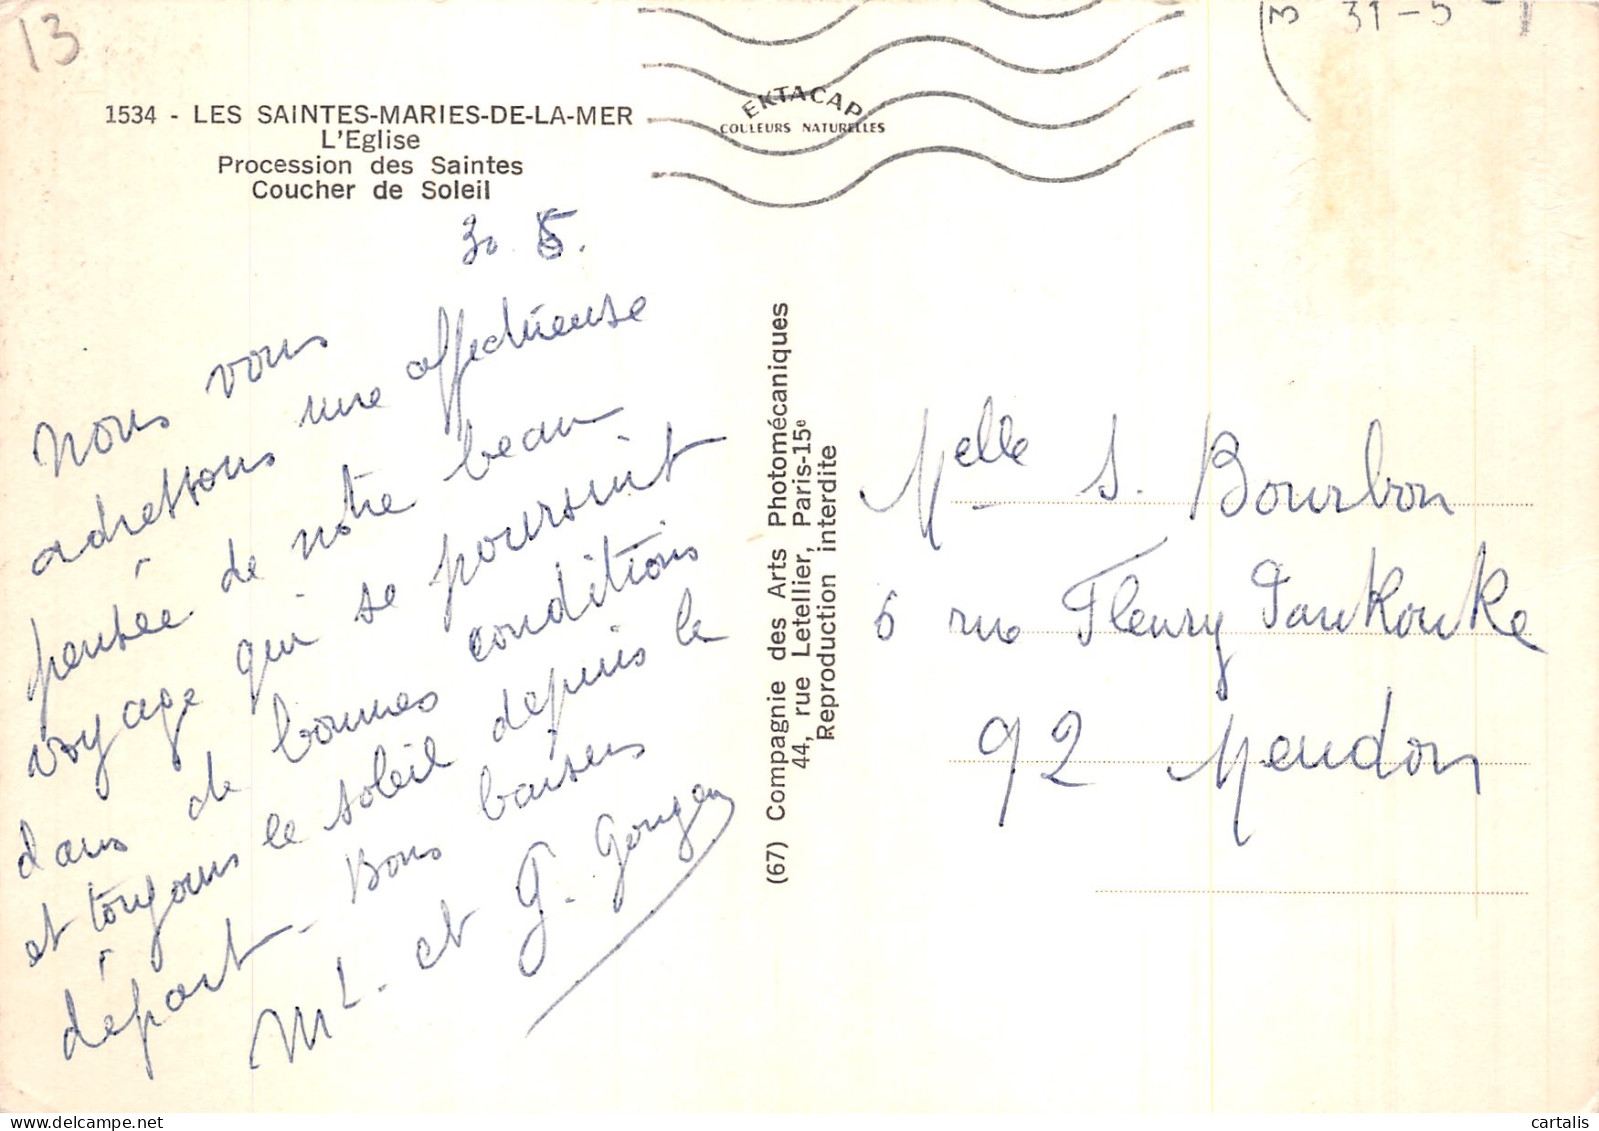 13
1534 - LES SAINTES-MARIES-DE-LA-MER
L'Eglise
Procession des Saintes
Coucher de Soleil
EKTACAP
COULEURS NATURELLES
31-5
30.5.
Nous vous
adressons une affectueuse
pensée de notre beau
voyage qui se poursuit
dans de bonnes conditions
et toujours le soleil depuis le
départ - Bons baisers
ML. et G.
(67) Compagnie des Arts Photomécaniques
44, rue Letellier, Paris-15e
Reproduction interdite
Melle S. Bourbon
6 rue Fleury Pankouke
92 Meudon
cartalis